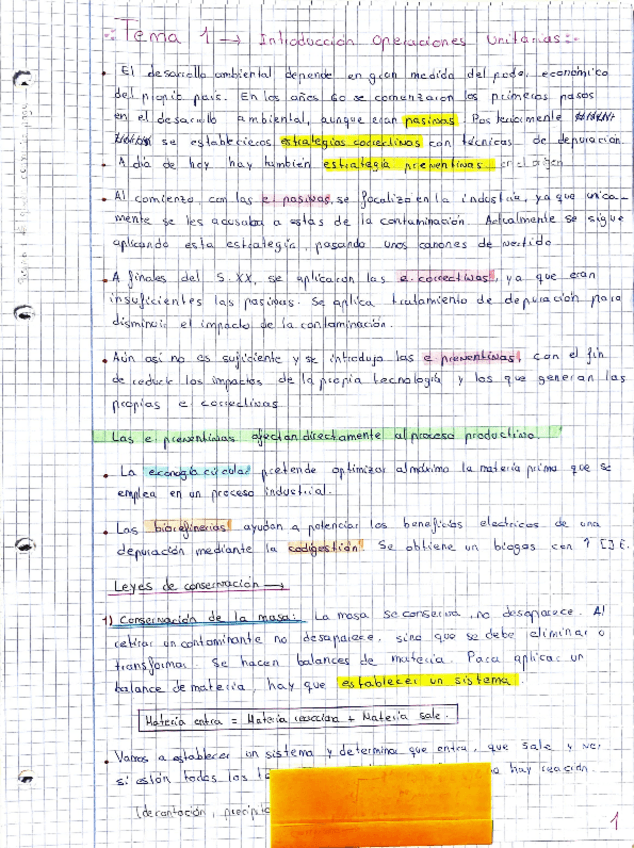 Tema 1 → Introducción Operaciones Unitarias:
• El desarrollo ambiental depende en gran medida del poder económico
del propio país. En los años 60 se comenzaron los primeros pasos
en el desarrollo ambiental, aunque eran pasivas. Posteriormente
se establecieron estrategias correctivas con técnicas de depuración.
• A día de hoy hay también estrategia preventivas en el origen
• Al comienzo, con las e. pasivas, se focalizo en la industria, ya que unica-
mente se les acusaba a estas de la contaminación. Actualmente se sigue
aplicando esta estrategia, pasando unos canones de vertido.
• A finales del S. XX, se aplicaron las e. correctivas, ya que eran
insuficientes las pasivas. Se aplica tratamiento de depuración para
disminuir el impacto de la contaminación.
• Aún así no es suficiente y se introdujo las e preventivas, con el fin
de reducir los impactos de la propia tecnología y los que generan las
propias e correctivas
Las e. preventivas afectan directamente al proceso productivo.
• La economía circular pretende optimizar al máximo la materia prima que se
emplea en un proceso industrial.
• Las biorefinerias ayudan a potenciar los beneficios electricos de una
depuración mediante la codigestión. Se obtiene un biogas con ↑ [] E.
Leyes de conservación →
1) Conservación de la masa: La masa se conserva, no desaparece. Al
retirar un contaminante no desaparece, sino que se debe eliminar o
transformar. Se hacen balances de materia. Para aplicar un
balance de materia, hay que establecer un sistema.
Materia entra = Materia reacciona + Materia sale.
• Vamos a establecer un sistema y determinar que entra, que sale y ver
si están todos los hay reacción.
(decantación,
1